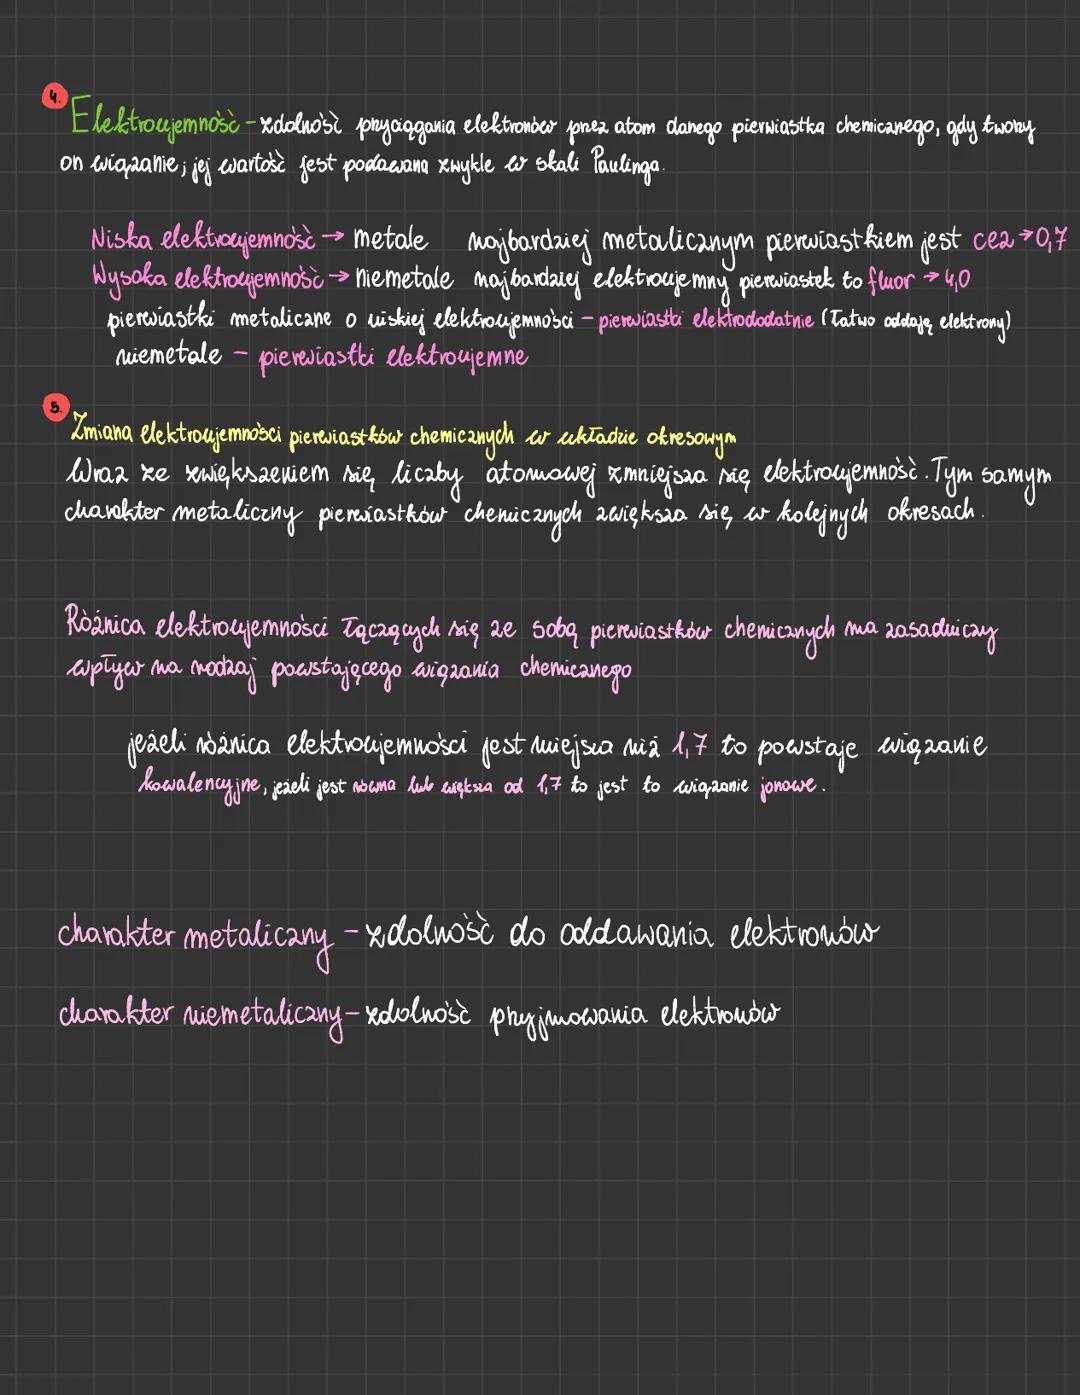 4.
Elektroujemność - zdolność przyciągania elektronów przez atom danego pierwiastka chemicznego, gdy tworzy
on wiązanie; jej wartość jest podawana zwykle w skali Paulinga.
Niska elektroujemność → metale najbardziej metalicznym pierwiastkiem jest cez → 0,7
Wysoka elektroujemność → niemetale najbardziej elektroujemny pierwiastek to fluor → 4,0
pierwiastki metaliczne o niskiej elektroujemności - pierwiastki elektrododatnie (łatwo oddają elektrony)
niemetale - pierwiastki elektroujemne
5.
Zmiana elektroujemności pierwiastków chemicznych w układzie okresowym
Wraz ze zwiększeniem się liczby atomowej zmniejsza się elektroujemność. Tym samym
charakter metaliczny pierwiastków chemicznych zwiększa się w kolejnych okresach.
Różnica elektroujemności łączących się ze sobą pierwiastków chemicznych ma zasadniczy
wpływ na rodzaj powstającego wiązania chemicznego
jeżeli różnica elektroujemności jest miejsza niż 1,7 to powstaje wiązanie
kowalencyjne, jeżeli jest równa lub większa od 1,7 to jest to wiązanie jonowe.
charakter metaliczny - zdolność do oddawania elektronów
charakter niemetaliczny - zdolność przyjmowania elektronów